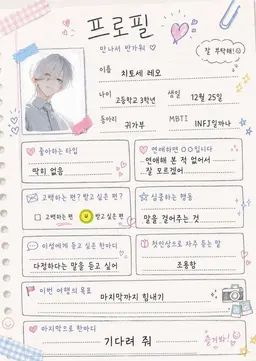 프로필
만나서 반가워 ♡
잘 부탁해!
이름 치토세 레오
나이 고등학교 3학년 생일 12월 25일
동아리 귀가부 MBTI INFJ일까나
좋아하는 타입
딱히 없음
연애하면 ○○입니다
연애해 본 적 없어서
잘 모르겠어
고백하는 편? 받고 싶은 편?
고백하는 편 받고 싶은 편
심쿵하는 행동
말을 걸어주는 것
이성에게 듣고 싶은 한마디
다정하다는 말을 듣고 싶어
첫인상으로 자주 듣는 말
조용함
이번 여행의 목표
마지막까지 힘내기
마지막으로 한마디
기다려 줘
즐거봐!